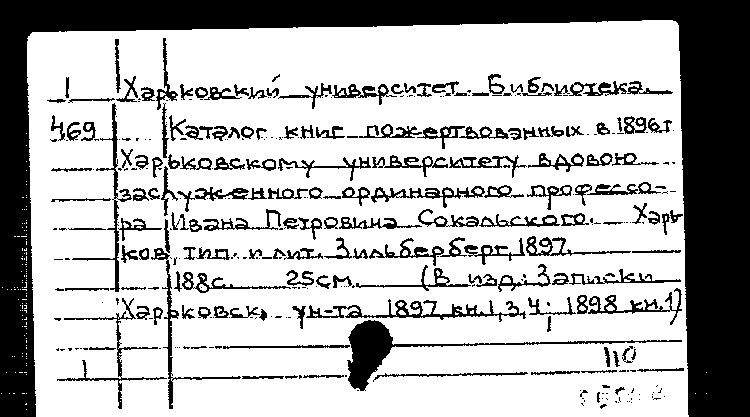 1 Харьковский университет. Библиотека.
469 Каталог книг пожертвованных в 1896г
Харьковскому университету вдовою
заслуженного ординарного профессо-
ра Ивана Петровича Сокальского. Харь-
ков, тип. и лит. Зильберберг, 1897.
188с. 25см. (В изд.: Записки
Харьковск. ун-та 1897 кн.1,3,4; 1898 кн.1)
1 110